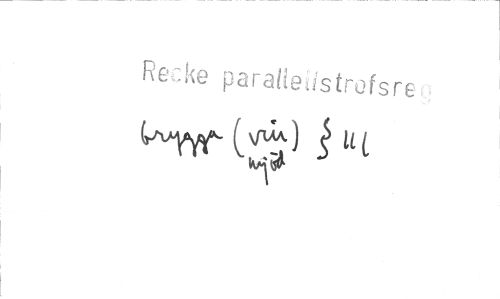 Recke parallellstrofsreg
brygga (vin) } III
mjöd